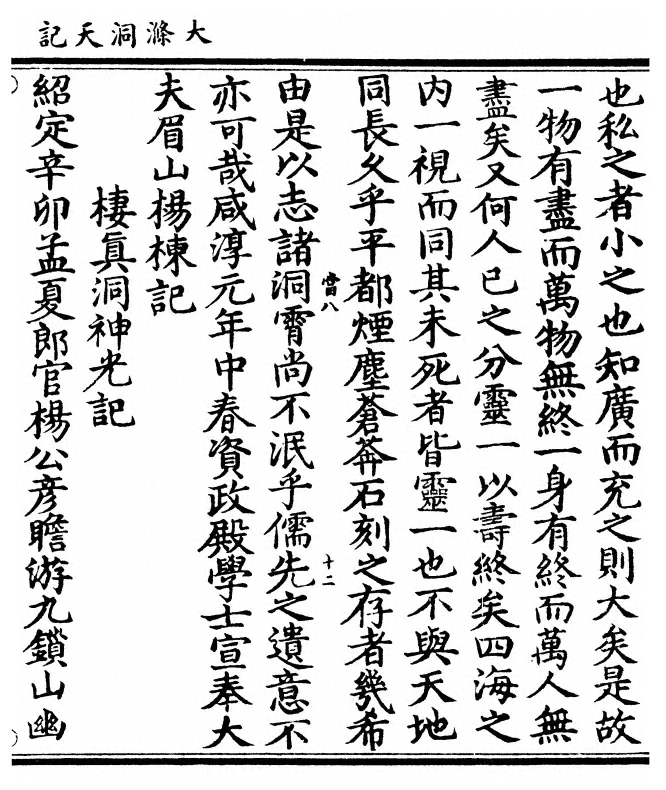 大滌洞天記
也私之者小之也知廣而充之則大矣是故
一物有盡而萬物無終一身有終而萬人無
盡矣又何人已之分靈一以壽終矣四海之
内一視而同其未死者皆靈一也不與天地
同長久乎平都煙塵蒼莽石刻之存者幾希
當八
十二
由是以志諸洞霄尚不泯乎儒先之遺意不
亦可哉咸淳元年中春資政殿學士宣奉大
夫眉山楊棟記
棲眞洞神光記
紹定辛卯孟夏郎官楊公彦瞻游九鎖山幽